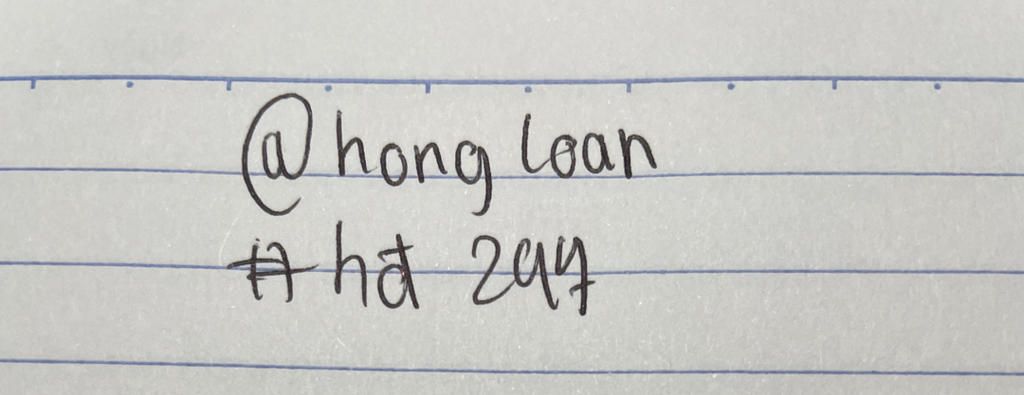 @hong loan
#hđ 297